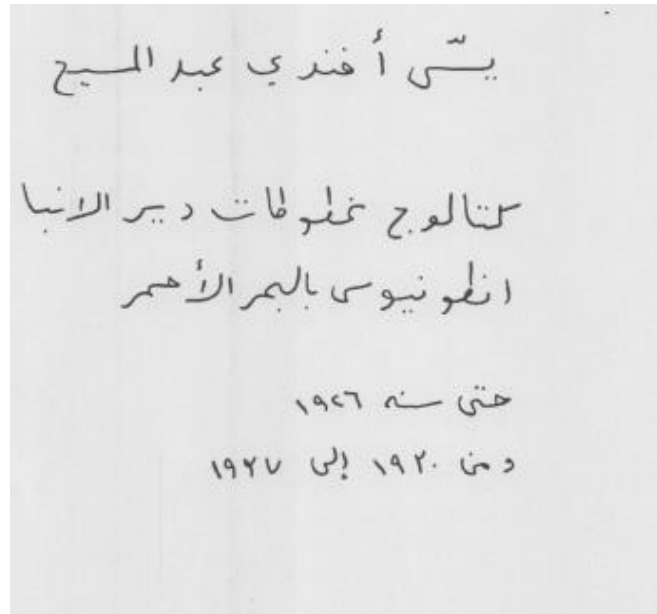 يسّى أفندي عبد المسيح
كتالوج مخطوطات دير الانبا
انطونيوس بالبحر الأحمر
حتى سنه ١٩٢٦
ومن ١٩٢٠ إلى ١٩٢٧